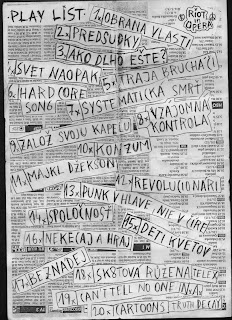 PLAY LIST
RIOT OPERA
1. OBRANA VLASTI
2. PREDSUDKY
3. JAKO DLHO EŠTE?
4. SVET NAOPAK
5. TRAJA BRUCHÁČI
6. HARDCORE SONG
7. SYSTEMATICKÁ SMRT
8. VZÁJOMNÁ KONTROLA
9. ZALOŽ SVOJU KAPELU
10. KONZUM
11. MAJKL DŽEKSON
12. REVOLUCIONÁRI
13. PUNK V HLAVE NIE V CIFE
14. SPOLOČNOSŤ
15. DETI KVETOV
16. NEKECAJ A HRAJ
17. BEZNÁDEJ
18. SKŠTOVÁ RUŽENA TELEX
19. CAN'T TELL NO ONE
20. CARTOONS TRUTH DECAY